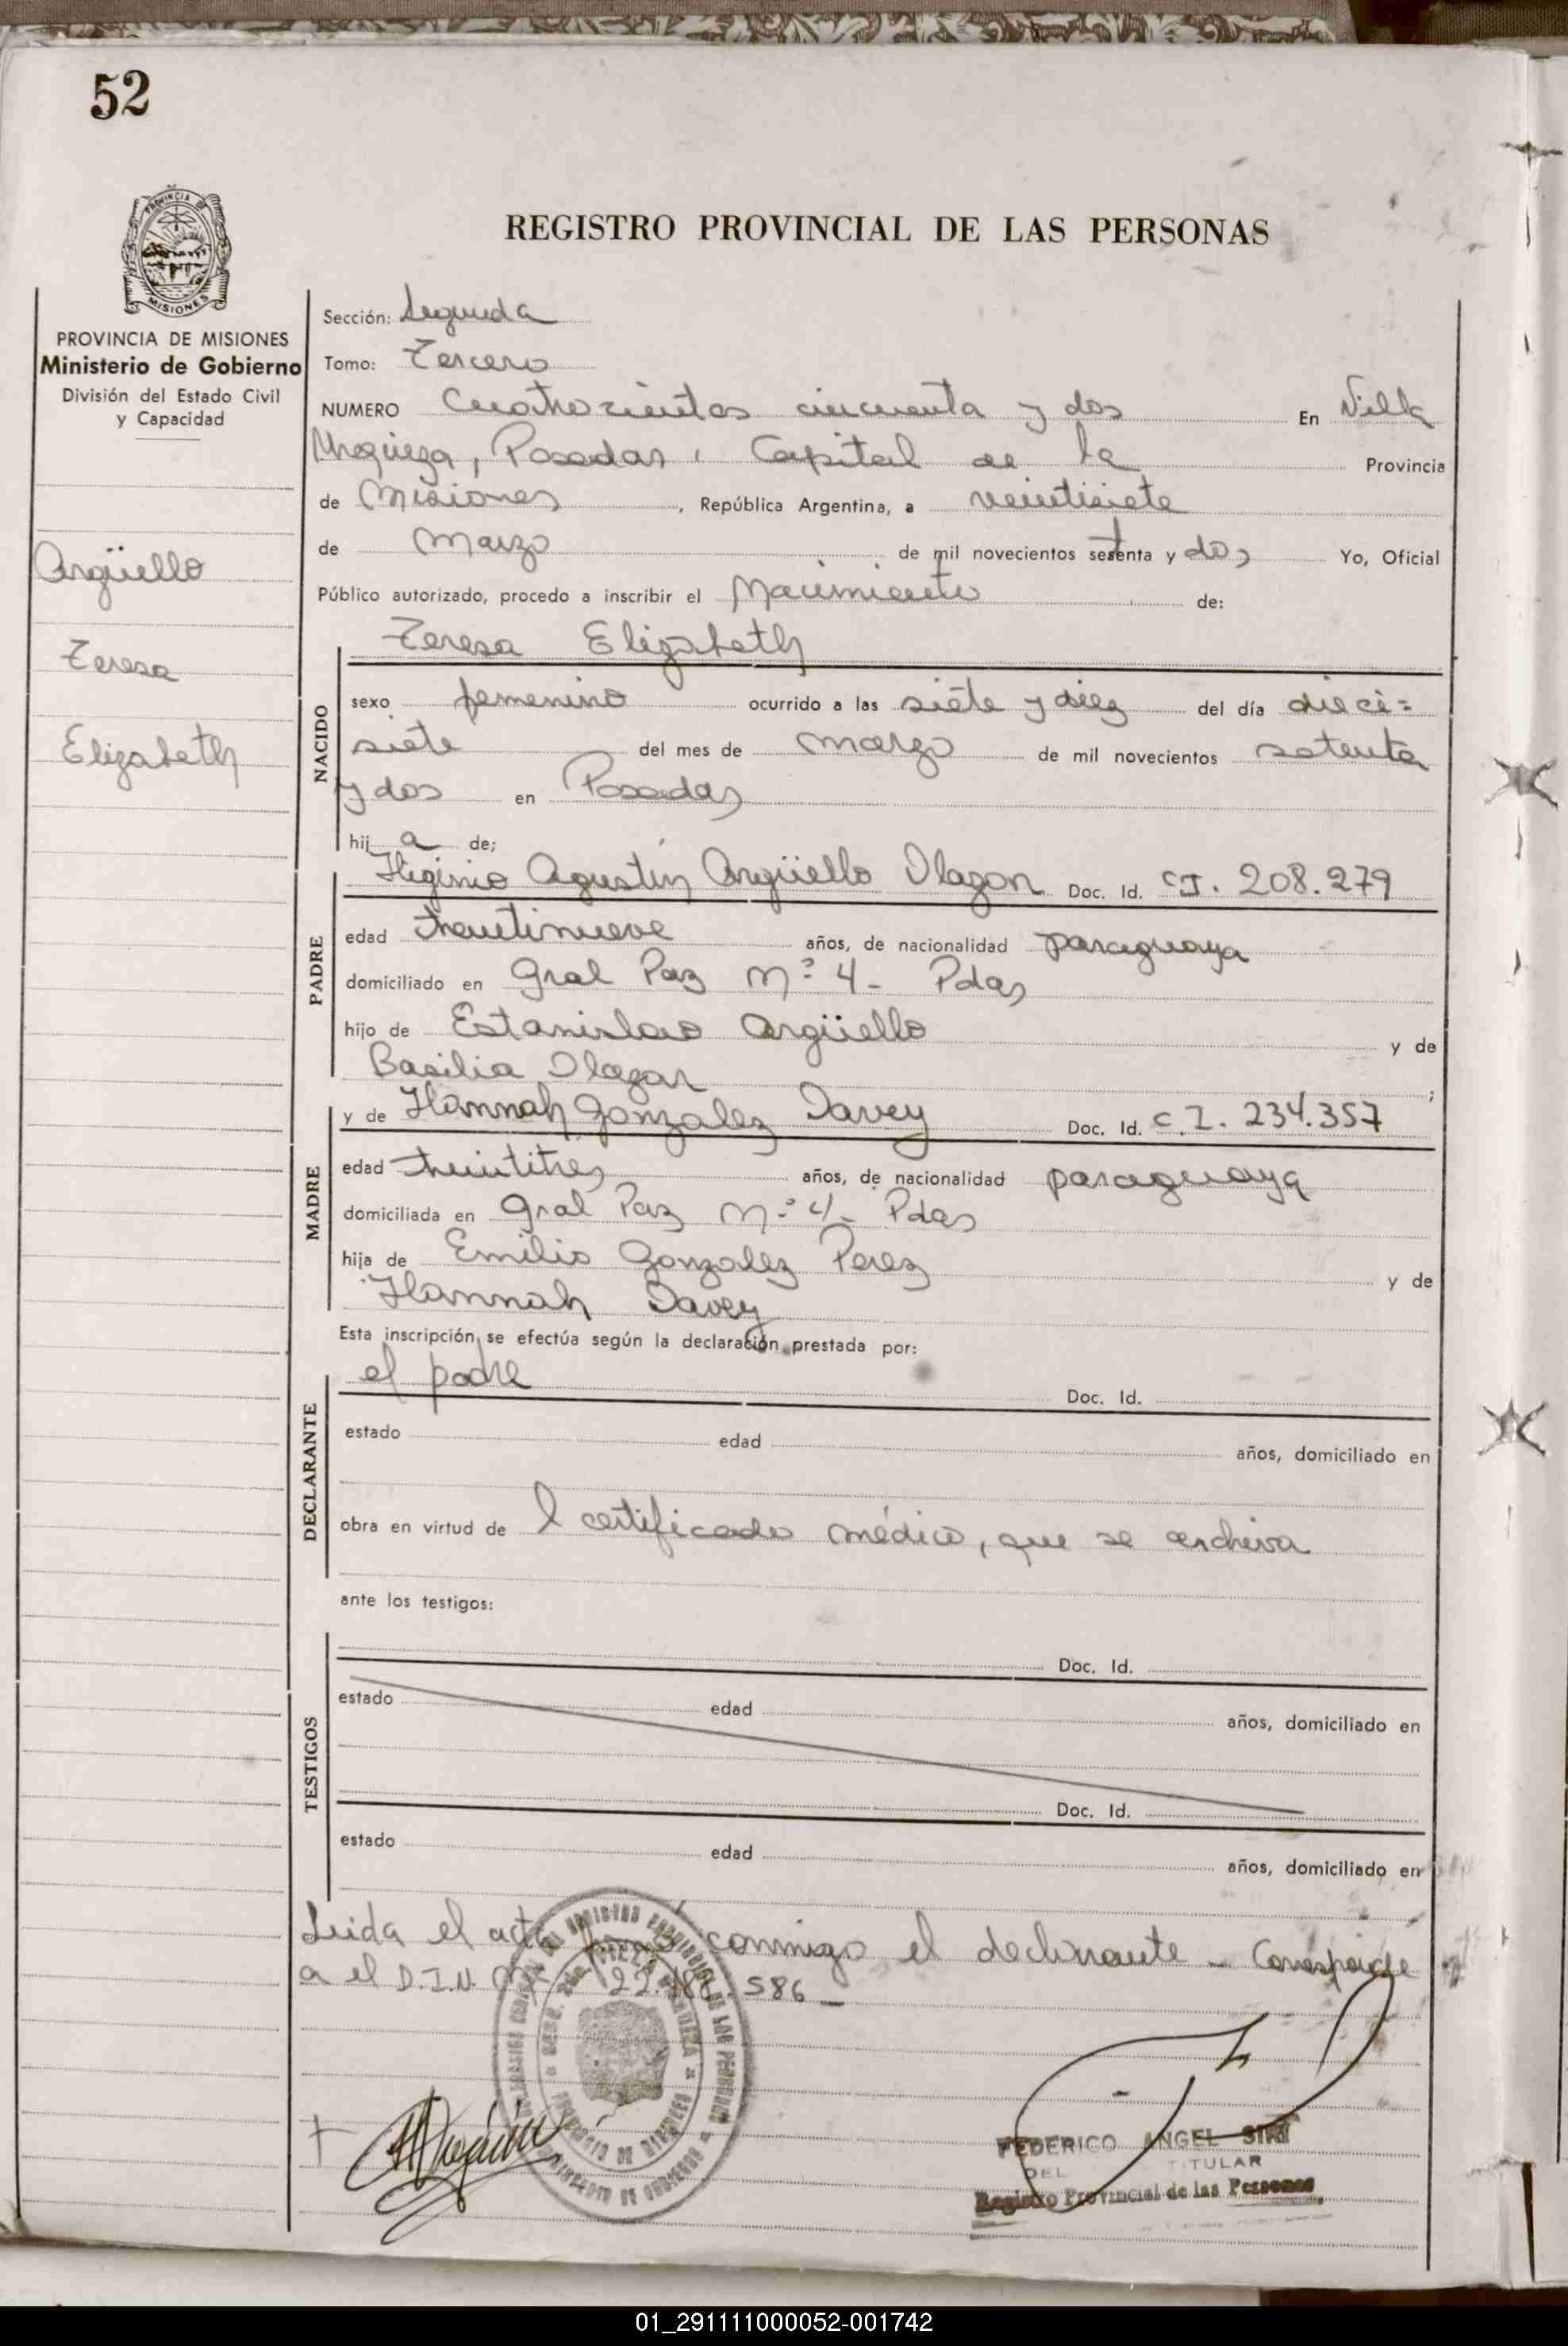 52
PROVINCIA DE
MISIONES
REGISTRO PROVINCIAL DE LAS PERSONAS
PROVINCIA DE MISIONES
Ministerio de Gobierno
División del Estado Civil
y Capacidad
Argüello
Teresa
Elizabeth
Sección: Segunda
Tomo: Tercero
NUMERO Cuatrocientos cincuenta y dos En Villa
Urquiza, Posadas, Capital de la Provincia
de Misiones, República Argentina, a veintisiete
de Marzo de mil novecientos setenta y dos Yo, Oficial
Público autorizado, procedo a inscribir el Nacimiento de:
Teresa Elizabeth
NACIDO
sexo femenino ocurrido a las siete y diez del día dieci=
siete del mes de marzo de mil novecientos setenta
y dos en Posadas
hij a de;
PADRE
Higinio Agustín Argüello Olazar Doc. Id. CI. 208.279
edad treintinueve años, de nacionalidad paraguaya
domiciliado en Gral Paz Nº 4- Pdas
hijo de Estanislao Argüello y de
Basilia Olazar ;
MADRE
y de Hannah Gonzalez Davey Doc. Id. C.I. 234.357
edad treintitres años, de nacionalidad paraguaya
domiciliada en Gral Paz Nº 4- Pdas
hija de Emilio Gonzalez Perez y de
Hannah Davey
Esta inscripción se efectúa según la declaración prestada por:
DECLARANTE
el padre Doc. Id.
estado edad años, domiciliado en
obra en virtud de l certificado médico, que se archiva
ante los testigos:
TESTIGOS
Doc. Id.
estado edad años, domiciliado en
Doc. Id.
estado edad años, domiciliado en
Leida el acta conmigo el declarante - Corresponde
a el D.I.N. 22. 586-
FEDERICO ANGEL
DEL TITULAR
Registro Provincial de las Personas
01_291111000052-001742